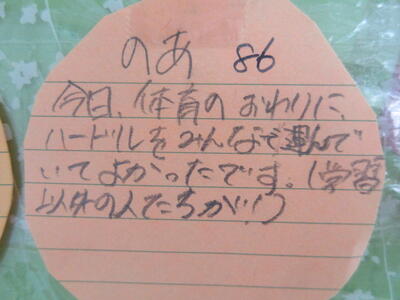 のあ 86
今日、体育のおわりに、
ハードルをみんなで運んで
いてよかったです。(学習
以外の人たちが!)